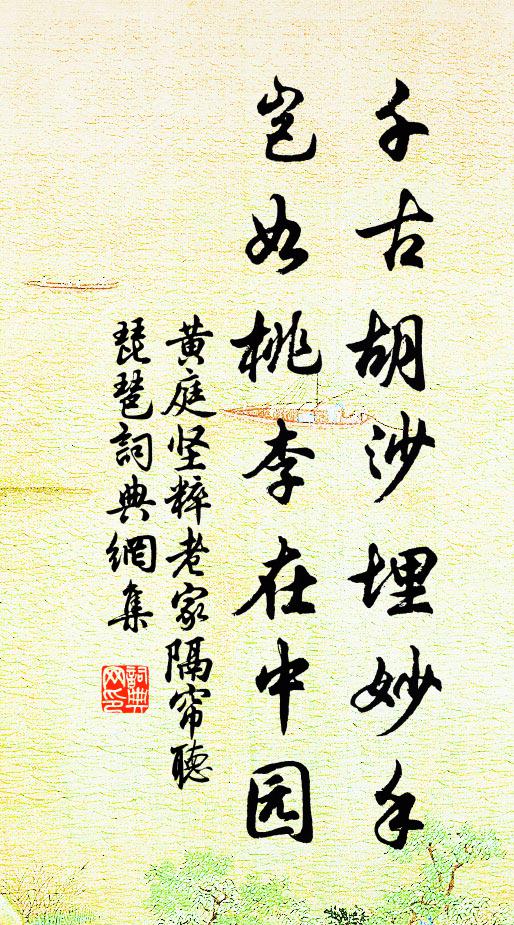 千古胡沙埋妙手
岂如桃李在中园
黄庭坚粹老家隔帘聽
琵琶詞典網集
詞典网印